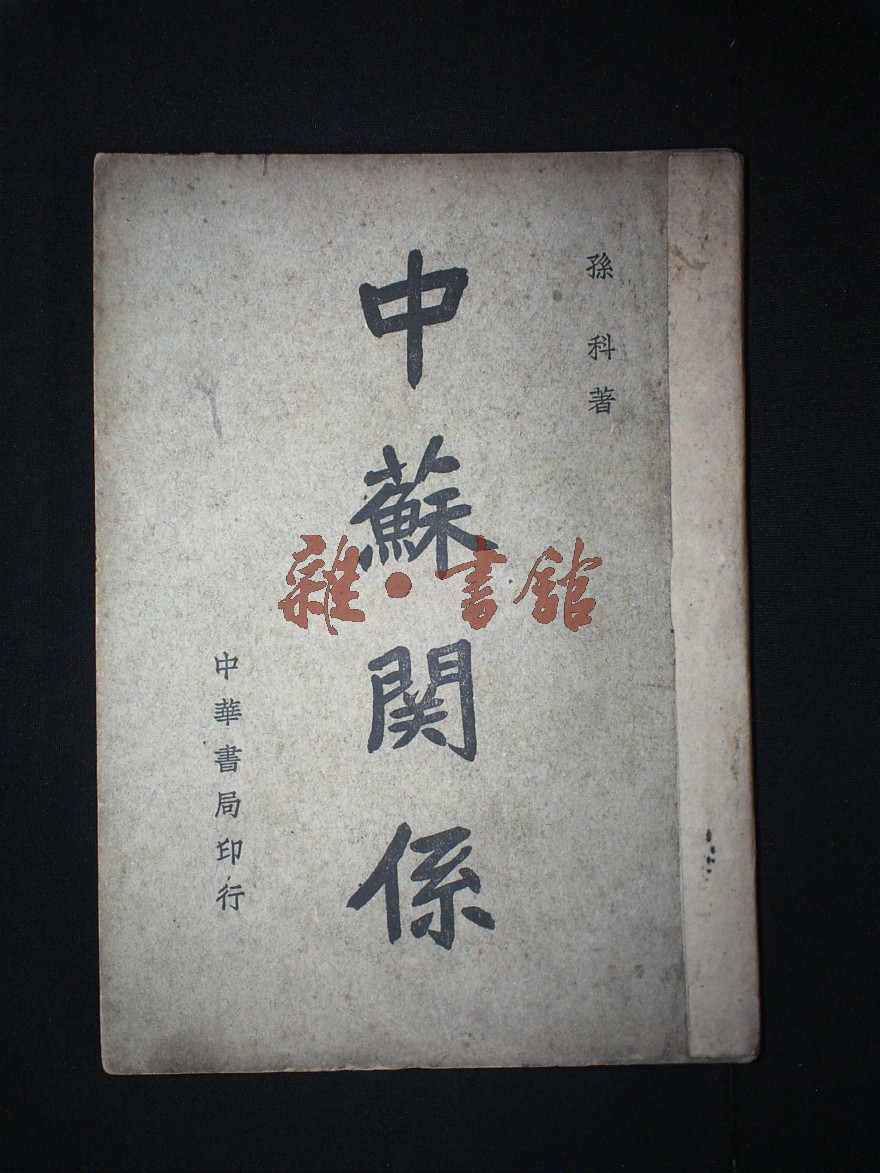 孫科著
中蘇関係
中華書局印行
雜·書館